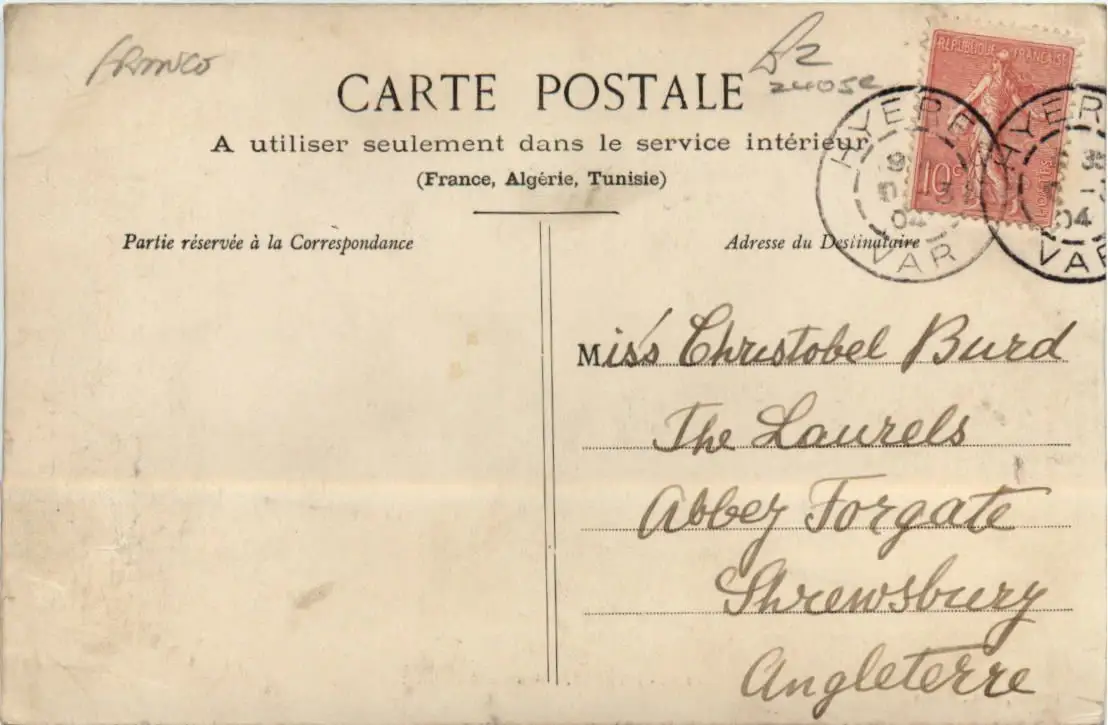 Franco
CARTE POSTALE
A utiliser seulement dans le service intérieur
(France, Algérie, Tunisie)
RÉPUBLIQUE FRANÇAISE
10c
POSTES
HYERES
04
VAR
HYER
04
VAR
Partie réservée à la Correspondance
Adresse du Destinataire
Miss Christobel Burd
The Laurels
Abbey Forgate
Shrewsbury
Angleterre